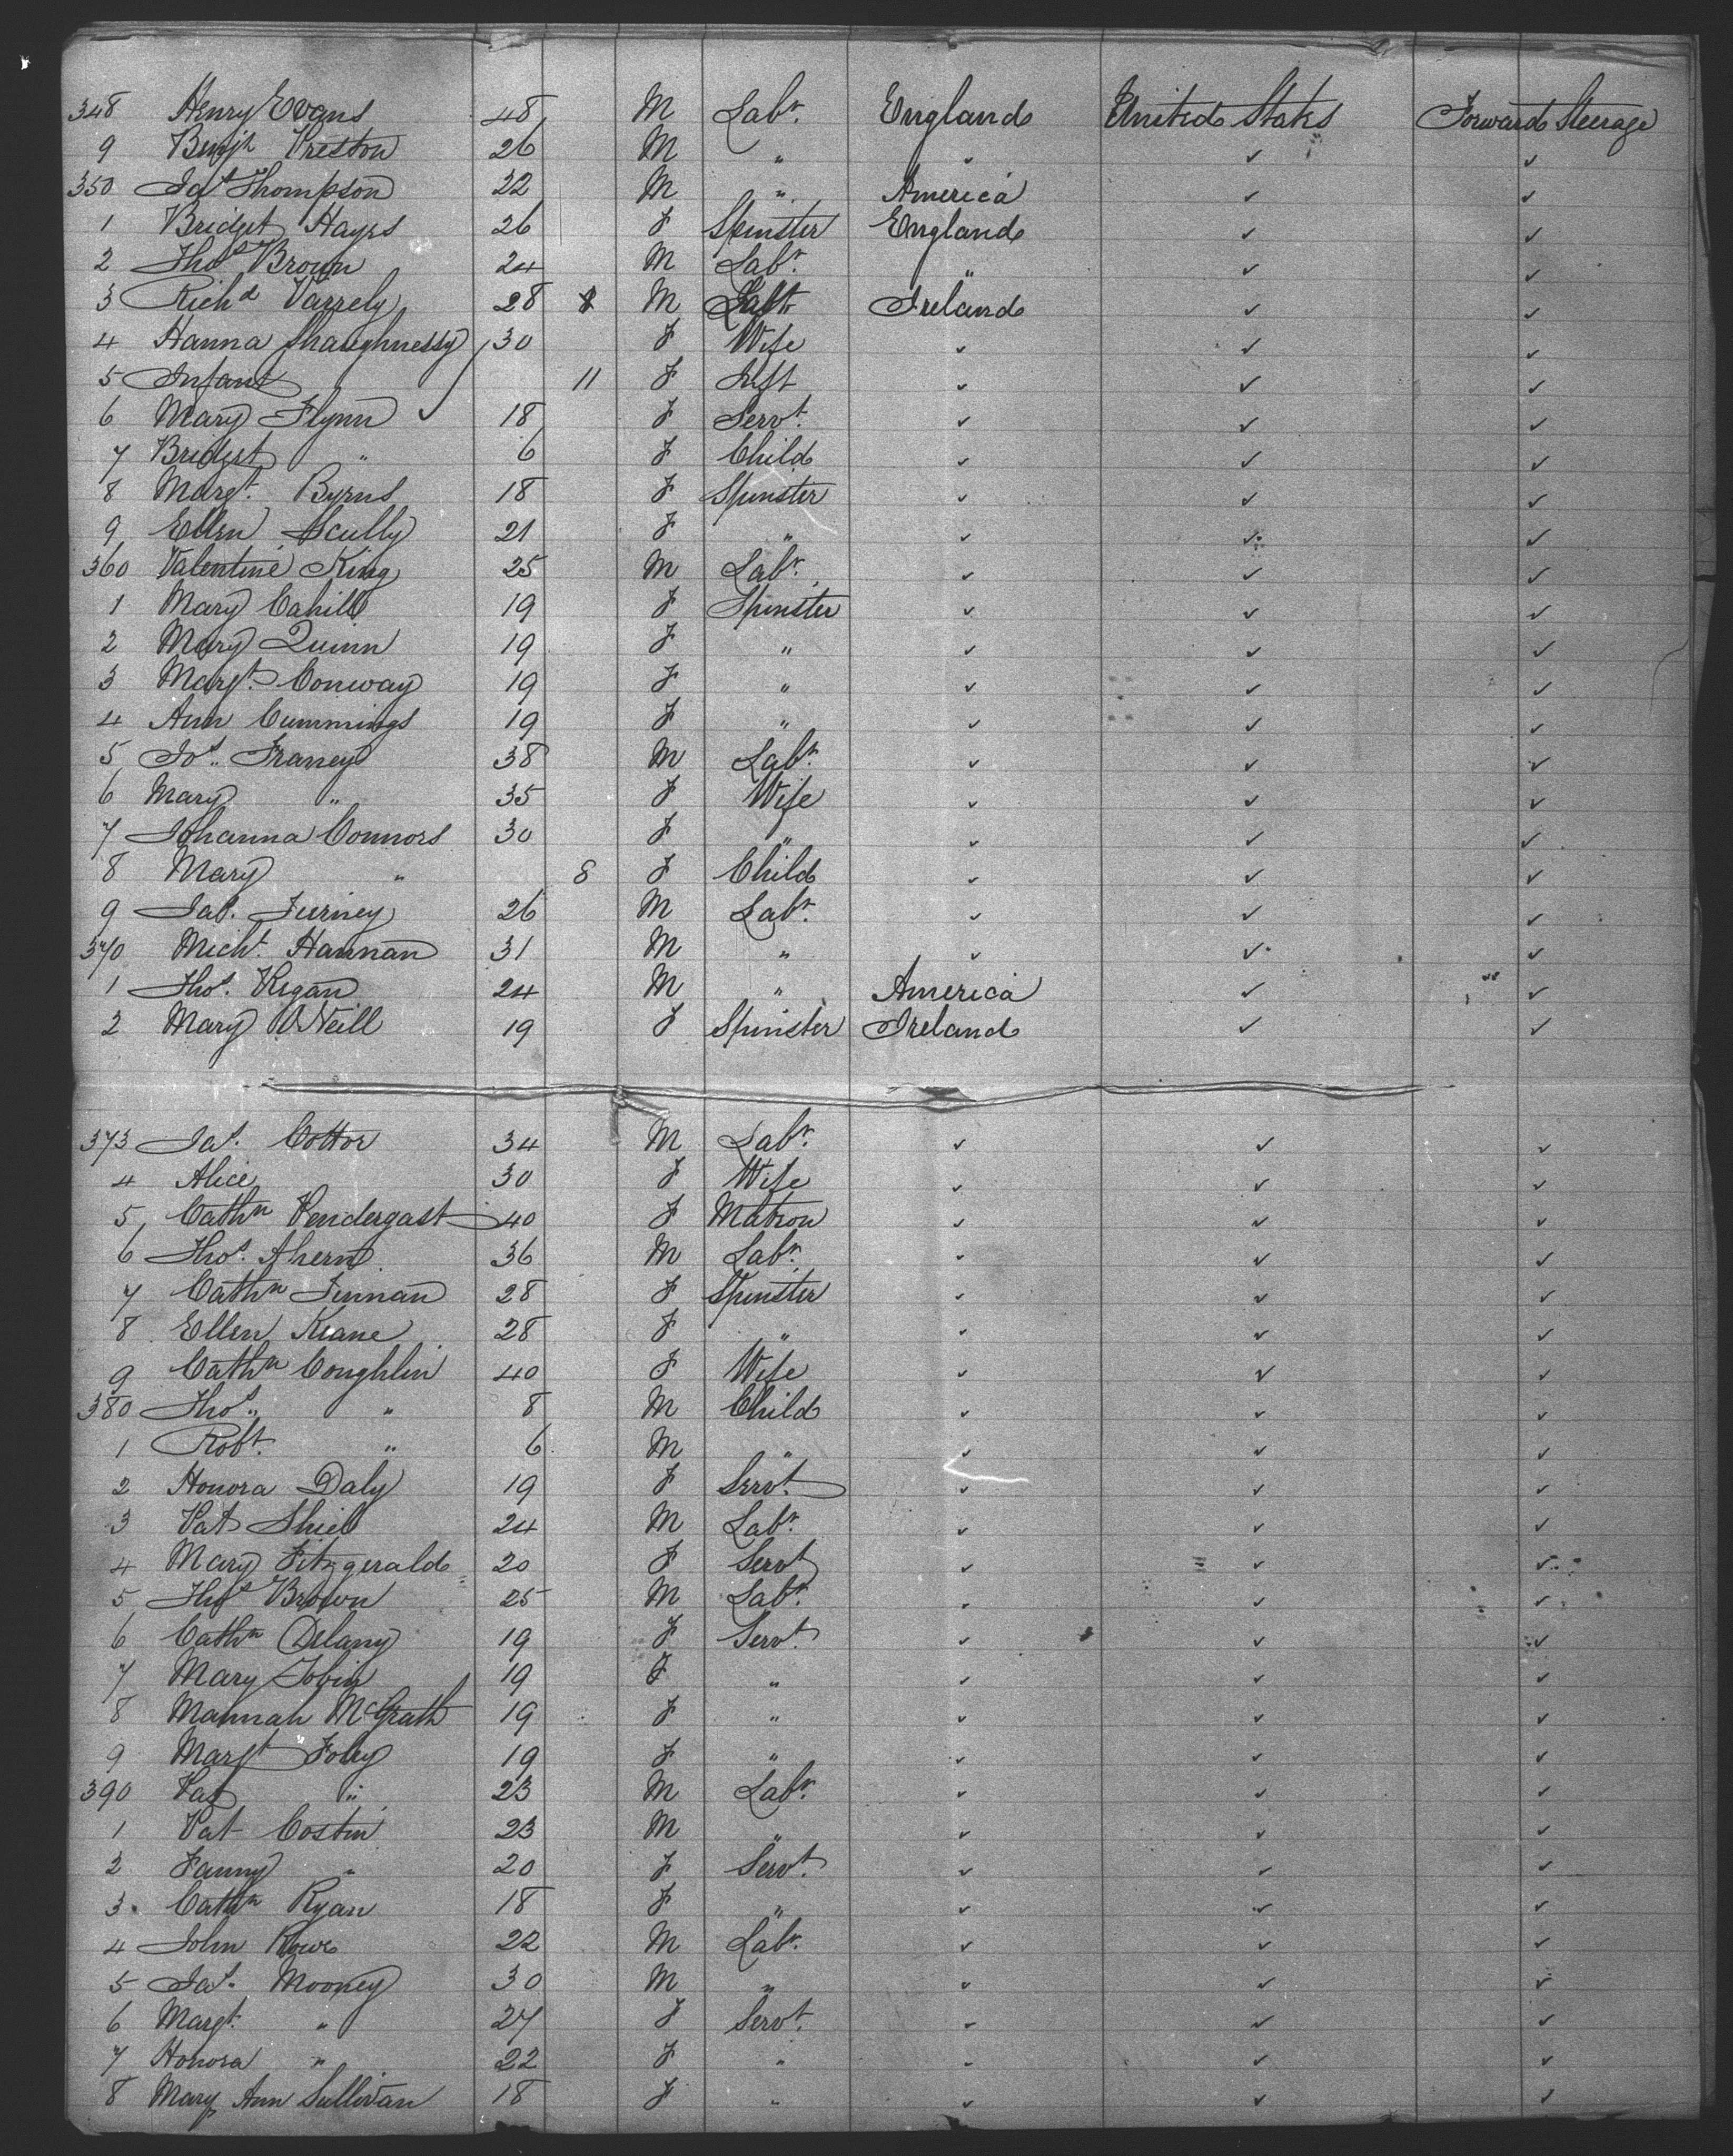 348 Henry Evans 48 M Labr. England United States Forward Steerage
9 Benjn Preston 26 M " " ✓ ✓
350 Jas Thompson 22 M " America ✓ ✓
1 Bridget Hayes 26 F Spinster England ✓ ✓
2 Thos Brown 24 M Labr. " ✓ ✓
3 Richd Varrely 28 M Ireland ✓ ✓
4 Hanna Shaughnessy 30 F Wife ✓ ✓ ✓
5 Infant " 11 F Inft ✓ ✓ ✓
6 Mary Flynn 18 F Servt. ✓ ✓ ✓
7 Bridget " 6 F Child ✓ ✓ ✓
8 Margt. Byrns 18 F Spinster ✓ ✓ ✓
9 Ellen Scully 21 F " ✓ ✓ ✓
360 Valentine King 25 M Labr. ✓ ✓ ✓
1 Mary Cahill 19 F Spinster ✓ ✓ ✓
2 Mary Quinn 19 F " ✓ ✓ ✓
3 Margt. Conway 19 F " ✓ ✓ ✓
4 Ann Cummings 19 F " ✓ ✓ ✓
5 Jos. Franey 38 M Labr. ✓ ✓ ✓
6 Mary " 35 F Wife ✓ ✓ ✓
7 Johanna Connors 30 F " ✓ ✓ ✓
8 Mary " 8 F Child ✓ ✓ ✓
9 Jas. Furney 26 M Labr. ✓ ✓ ✓
370 Michl. Hannan 31 M " ✓ ✓ ✓
1 Thos. Regan 24 M " America ✓ ✓
2 Mary O'Neill 19 F Spinster Ireland ✓ ✓
373 Jas. Cottor 34 M Labr. ✓ ✓ ✓
4 Alice 30 F Wife ✓ ✓ ✓
5 Cathn Pendergast 40 F Matron ✓ ✓ ✓
6 Thos. Ahern 36 M Labr. ✓ ✓ ✓
7 Cathn Finnan 28 F Spinster ✓ ✓ ✓
8 Ellen Keane 28 F " ✓ ✓ ✓
9 Cathn Coughlin 40 F Wife ✓ ✓ ✓
380 Thos. " 8 M Child ✓ ✓ ✓
1 Robt. " 6 M " ✓ ✓ ✓
2 Honora Daly 19 F Servt. ✓ ✓ ✓
3 Pat Shiel 24 M Labr. ✓ ✓ ✓
4 Mary Fitzgerald 20 F Servt ✓ ✓ ✓
5 Thos Brown 25 M Labr. ✓ ✓ ✓
6 Cathn Delany 19 F Servt. ✓ ✓ ✓
7 Mary Tobin 19 F " ✓ ✓ ✓
8 Mannah McGrath 19 F " ✓ ✓ ✓
9 Margt Foley 19 F " ✓ ✓ ✓
390 Pat " 23 M Labr. ✓ ✓ ✓
1 Pat Costin 23 M " ✓ ✓ ✓
2 Fanny " 20 F Servt. ✓ ✓ ✓
3 Cathn Ryan 18 F " ✓ ✓ ✓
4 John Rowe 22 M Labr. ✓ ✓ ✓
5 Jas. Mooney 30 M " ✓ ✓ ✓
6 Margt. " 27 F Servt. ✓ ✓ ✓
7 Honora " 22 F " ✓ ✓ ✓
8 Mary Ann Sullivan 18 F " ✓ ✓ ✓